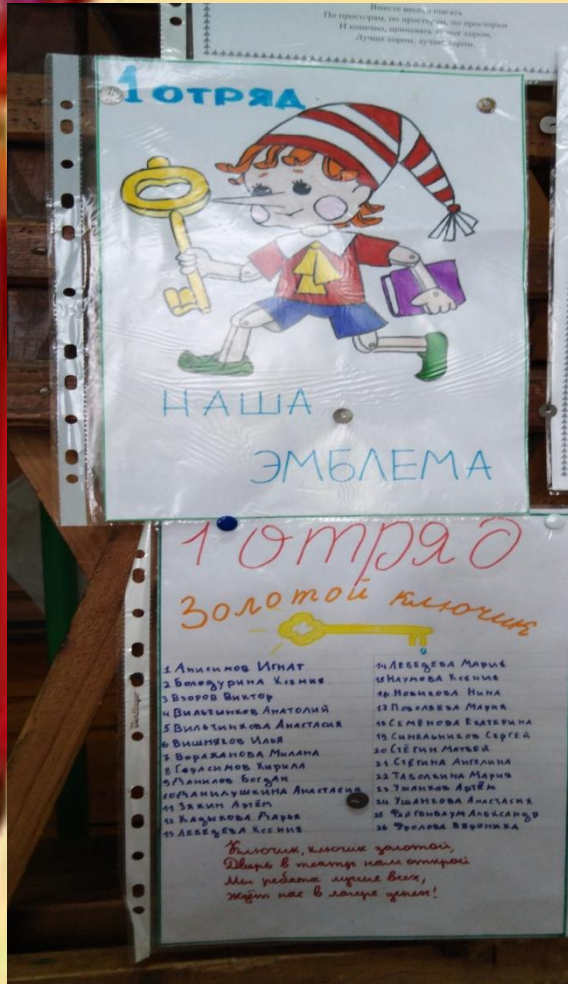 Вместе весело шагать
По просторам, по просторам, по просторам
И конечно, припевать лучше хором,
Лучше хором, лучше хором.
1 ОТРЯД
НАША
ЭМБЛЕМА
1 отряд
Золотой ключик
1 Анисимов Игнат
2 Болодурина Ксения
3 Взоров Виктор
4 Вильчинков Анатолий
5 Вильчинкова Анастасия
6 Вишняков Илья
7 Воражанова Милана
8 Герасимов Кирилл
9 Данилов Богдан
10 Данилушкина Анастасия
11 Зякин Артём
12 Казикова Дарья
13 Лебедева Ксения
14 Лебедева Мария
15 Наумова Ксения
16 Новикова Нина
17 Поволяева Мария
18 Семёнова Екатерина
19 Синельников Сергей
20 Стёгин Матвей
21 Стёгина Ангелина
22 Таболкина Мария
23 Ушанков Артём
24 Ушанкова Анастасия
25 Фрагенбаум Александр
26 Фролова Вероника
Ключик, ключик золотой,
Дверь в театр нам открой
Мы ребята лучше всех,
Ждёт нас в лагере успех!